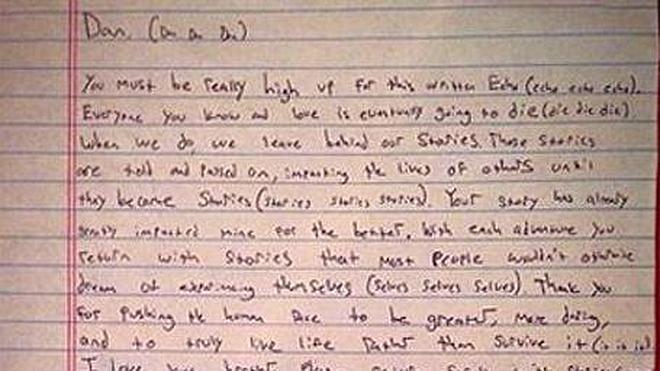 Dan. (Dan Dan Dan)
You must be really high up for this written Echo (echo echo echo).
Everyone you know and love is eventually going to die (die die die)
When we do, we leave behind our Stories. Those stories
are told and passed on, impacting the lives of others until
they become Stories (stories stories stories). Your story has already
greatly impacted mine for the better. With each adventure you
return with stories that most people wouldn't otherwise
dream of experiencing themselves (selves selves selves). Thank you
for pushing the human race to be greater, more daring,
and to truly live life rather than survive it (it it it).
I love you brother